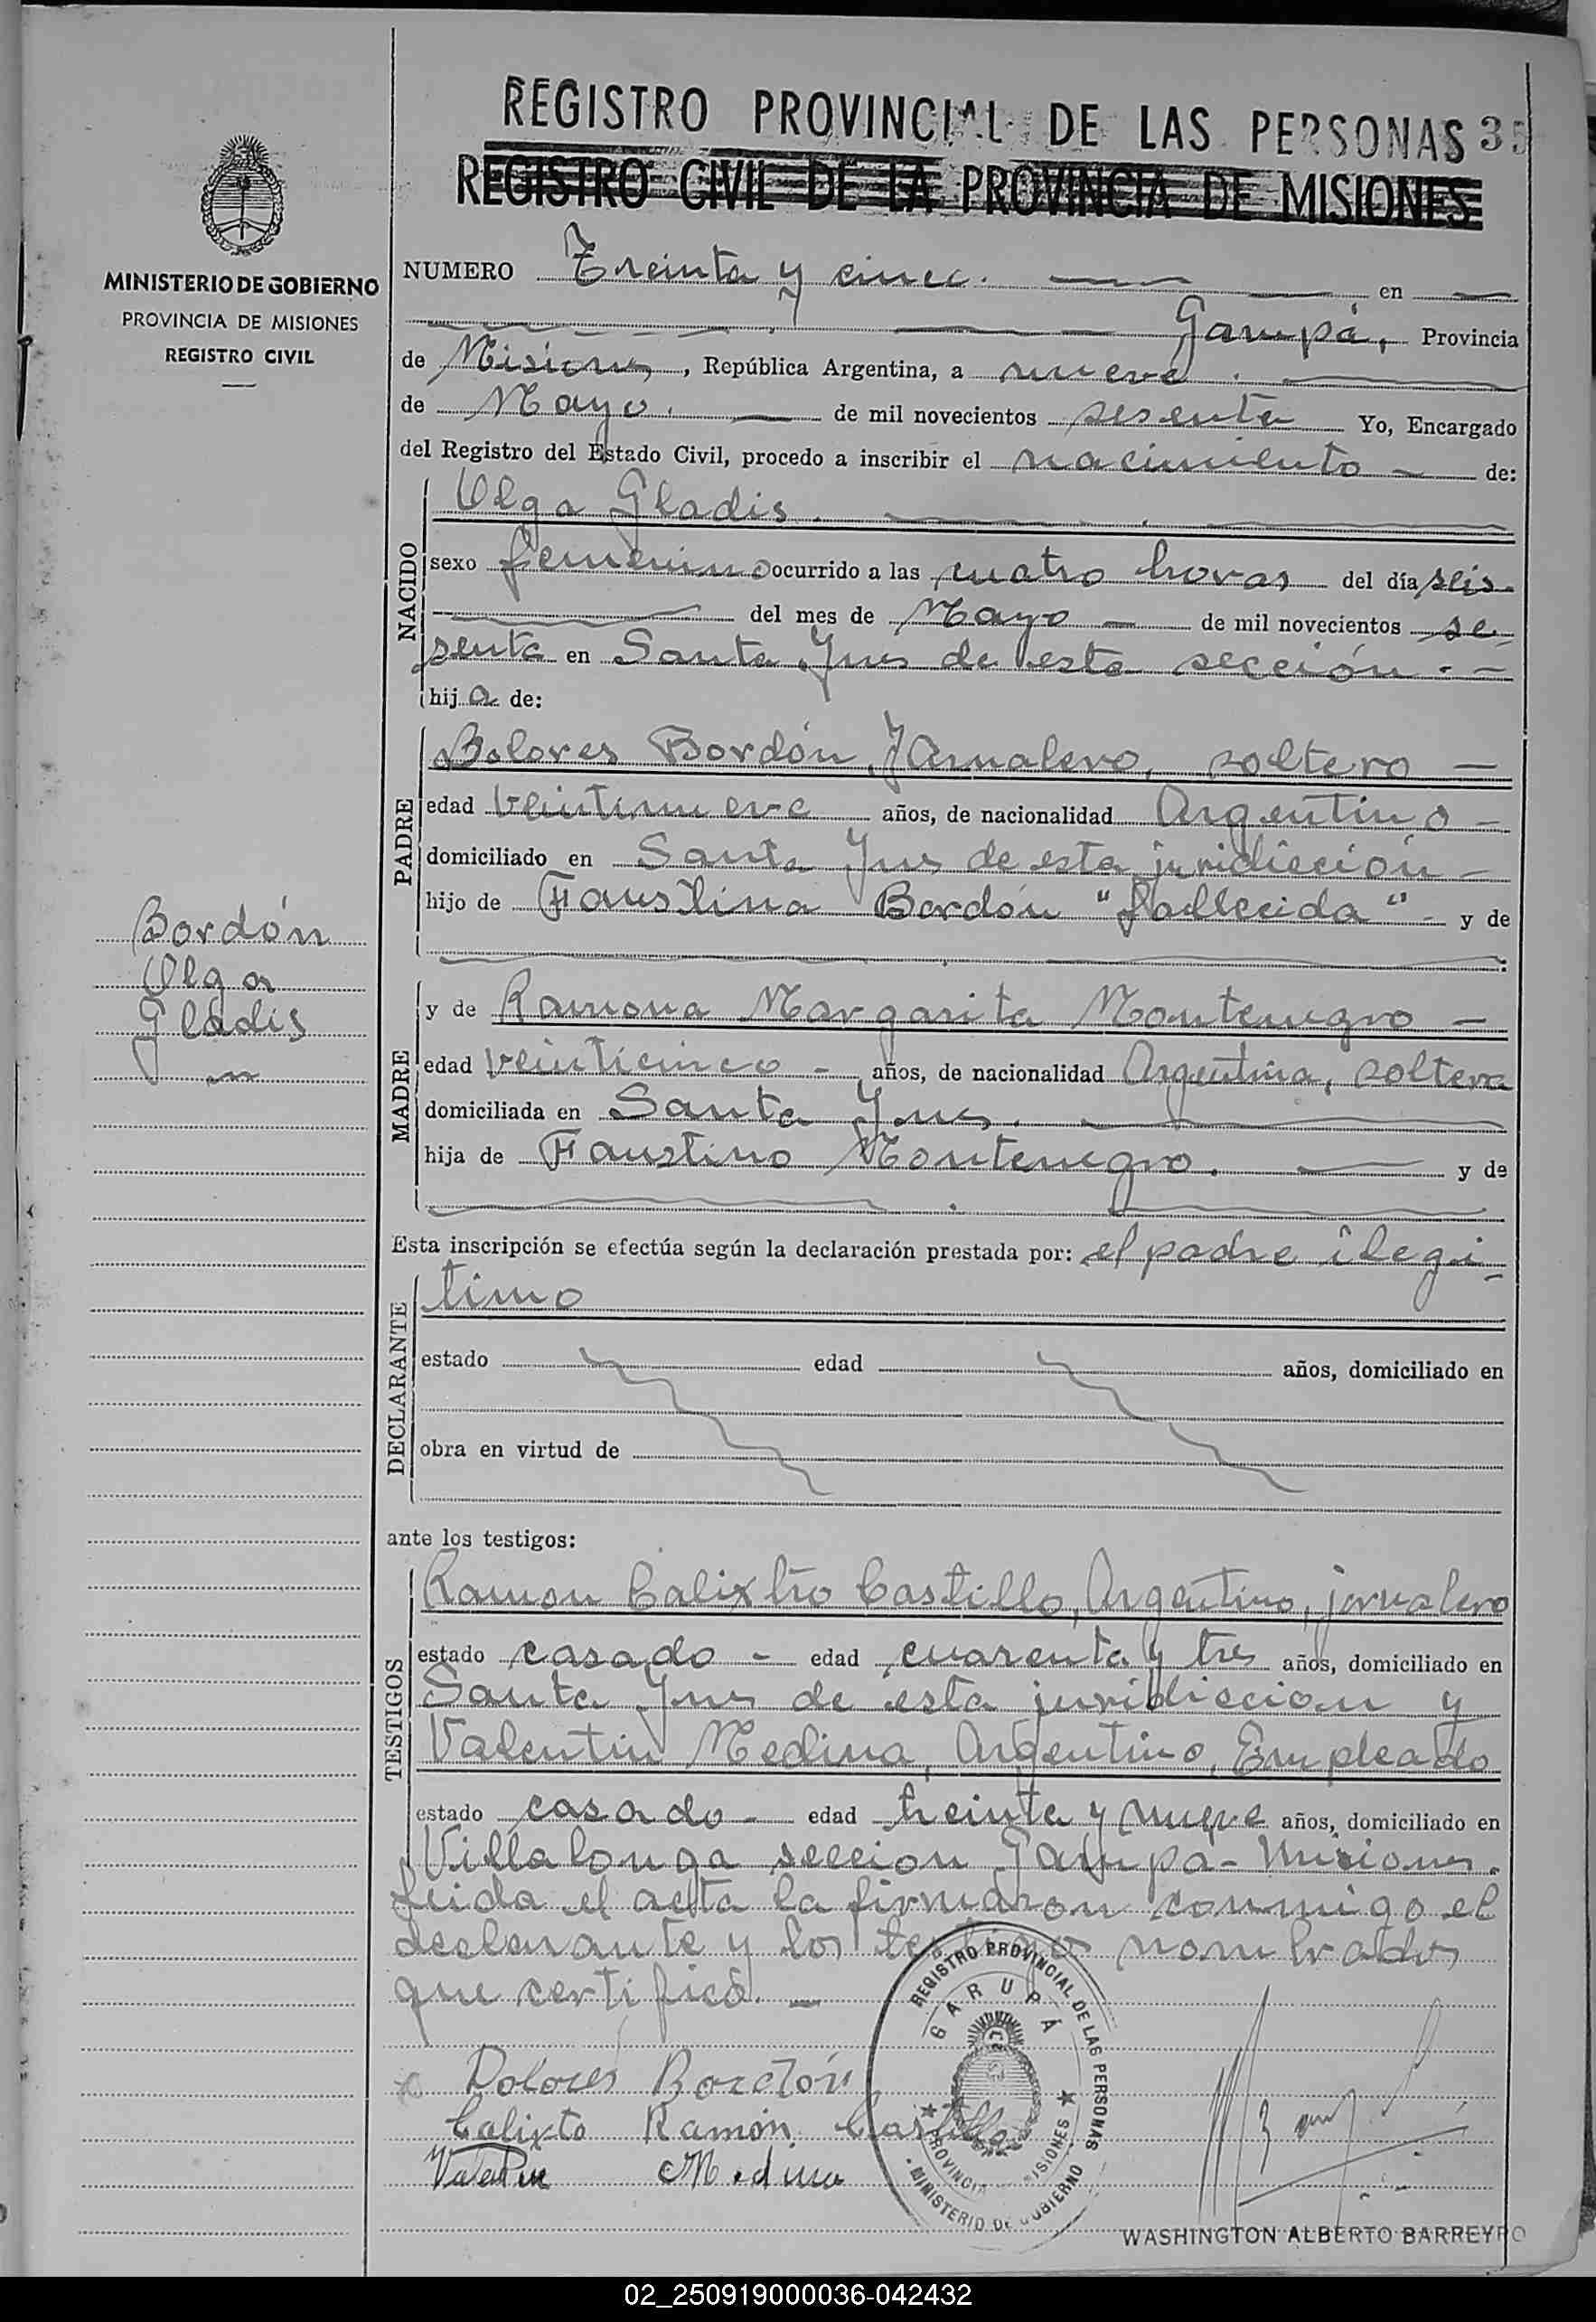 REGISTRO PROVINCIAL DE LAS PERSONAS 35
REGISTRO CIVIL DE LA PROVINCIA DE MISIONES
MINISTERIO DE GOBIERNO
PROVINCIA DE MISIONES
REGISTRO CIVIL
NUMERO Treinta y cinco. en
Garupá, Provincia
de Misiones, República Argentina, a nueve.
de Mayo. de mil novecientos sesenta Yo, Encargado
del Registro del Estado Civil, procedo a inscribir el nacimiento - de:
NACIDO
Olga Gladis.
sexo femenino ocurrido a las cuatro horas del día seis
del mes de Mayo - de mil novecientos se-
senta en Santa Ynes de esta sección. -
hija de:
PADRE
Dolores Bordón, Jornalero, soltero -
edad veintinueve años, de nacionalidad Argentino -
domiciliado en Santa Ynes de esta juridicción -
hijo de Faustina Bordón "fallecida" - y de
Bordón
Olga
Gladis
MADRE
y de Ramona Margarita Montenegro -
edad veinticinco - años, de nacionalidad Argentina, soltera
domiciliada en Santa Ynes.
hija de Faustino Montenegro. y de
Esta inscripción se efectúa según la declaración prestada por: el padre ilegi-
DECLARANTE
timo
estado edad años, domiciliado en
obra en virtud de
ante los testigos:
TESTIGOS
Ramon Calixtro Castillo, Argentino, jornalero
estado casado - edad cuarenta y tres años, domiciliado en
Santa Ynes de esta juridiccion y
Valentin Medina, Argentino, Empleado
estado casado - edad treinta y nueve años, domiciliado en
Villalonga seccion Garupá - Misiones.
Leida el acta la firmaron conmigo el
declarante y los testigos nombrados
que certificó. -
Dolores Bordón
Calixto Ramón Castillo
Valentin Medina
REGISTRO PROVINCIAL DE LAS PERSONAS
GARUPÁ
PROVINCIA MISIONES
MINISTERIO DE GOBIERNO
WASHINGTON ALBERTO BARREYRO
02_250919000036-042432